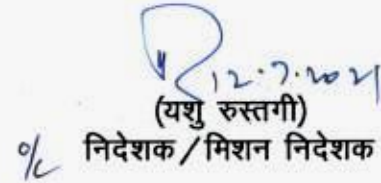 12.7.2021
(यशु रुस्तगी)
o/c निदेशक/मिशन निदेशक